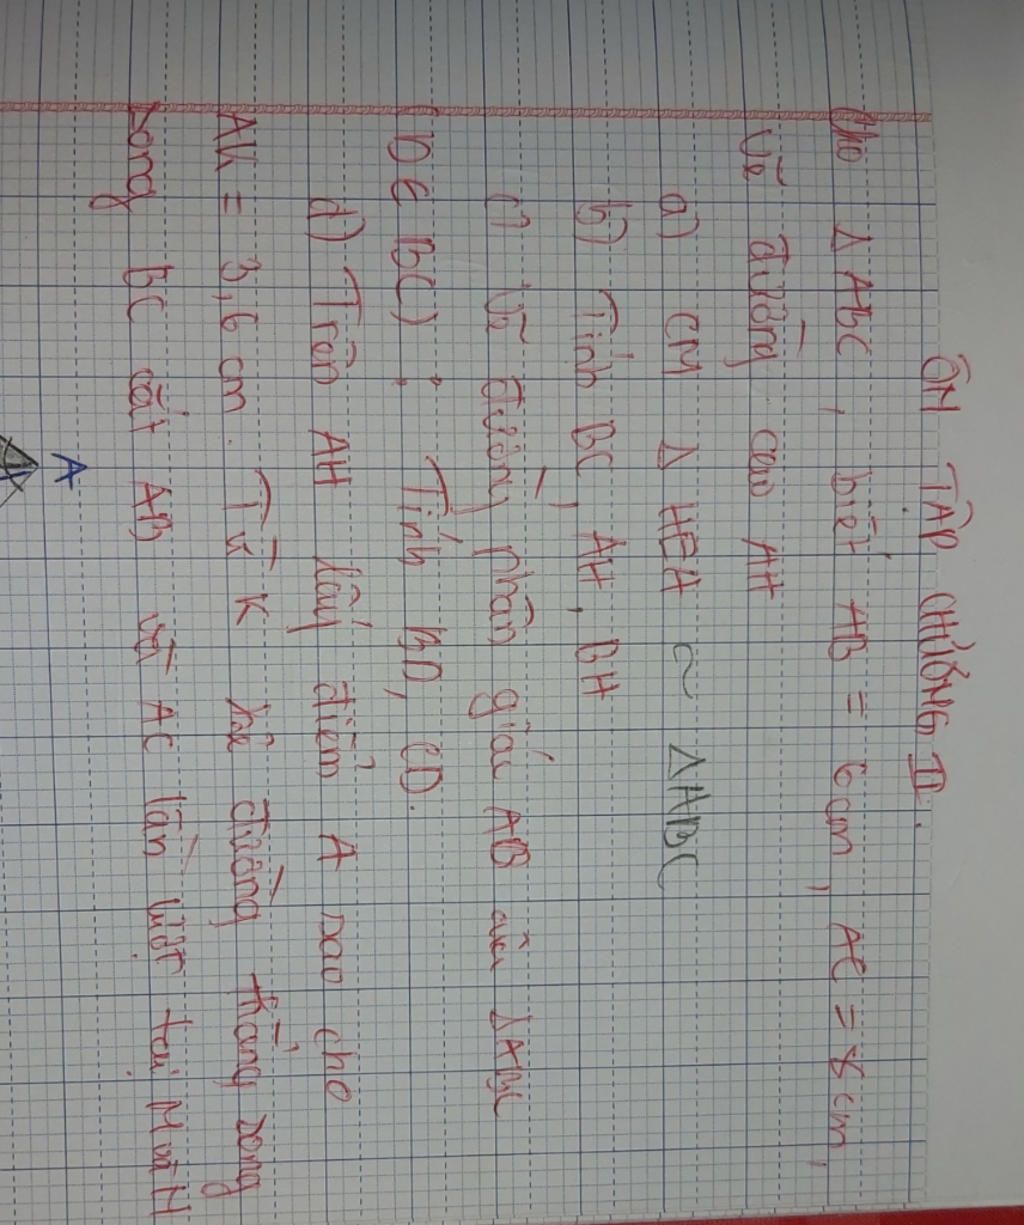 ÔN TẬP CHƯƠNG II.
Cho Δ ABC, biết AB = 6cm, AC = 8cm,
Vẽ đường cao AH
a) CM Δ HBA ~ ΔABC
b) Tính BC, AH, BH
c) Vẽ đường phân giác AD của ΔABC
(D ∈ BC): Tính BD, CD.
d) Trên AH lấy điểm A sao cho
AK = 3,6 cm. Từ K kẻ đường thẳng song
song BC cắt AB và AC lần lượt tại M và N
A